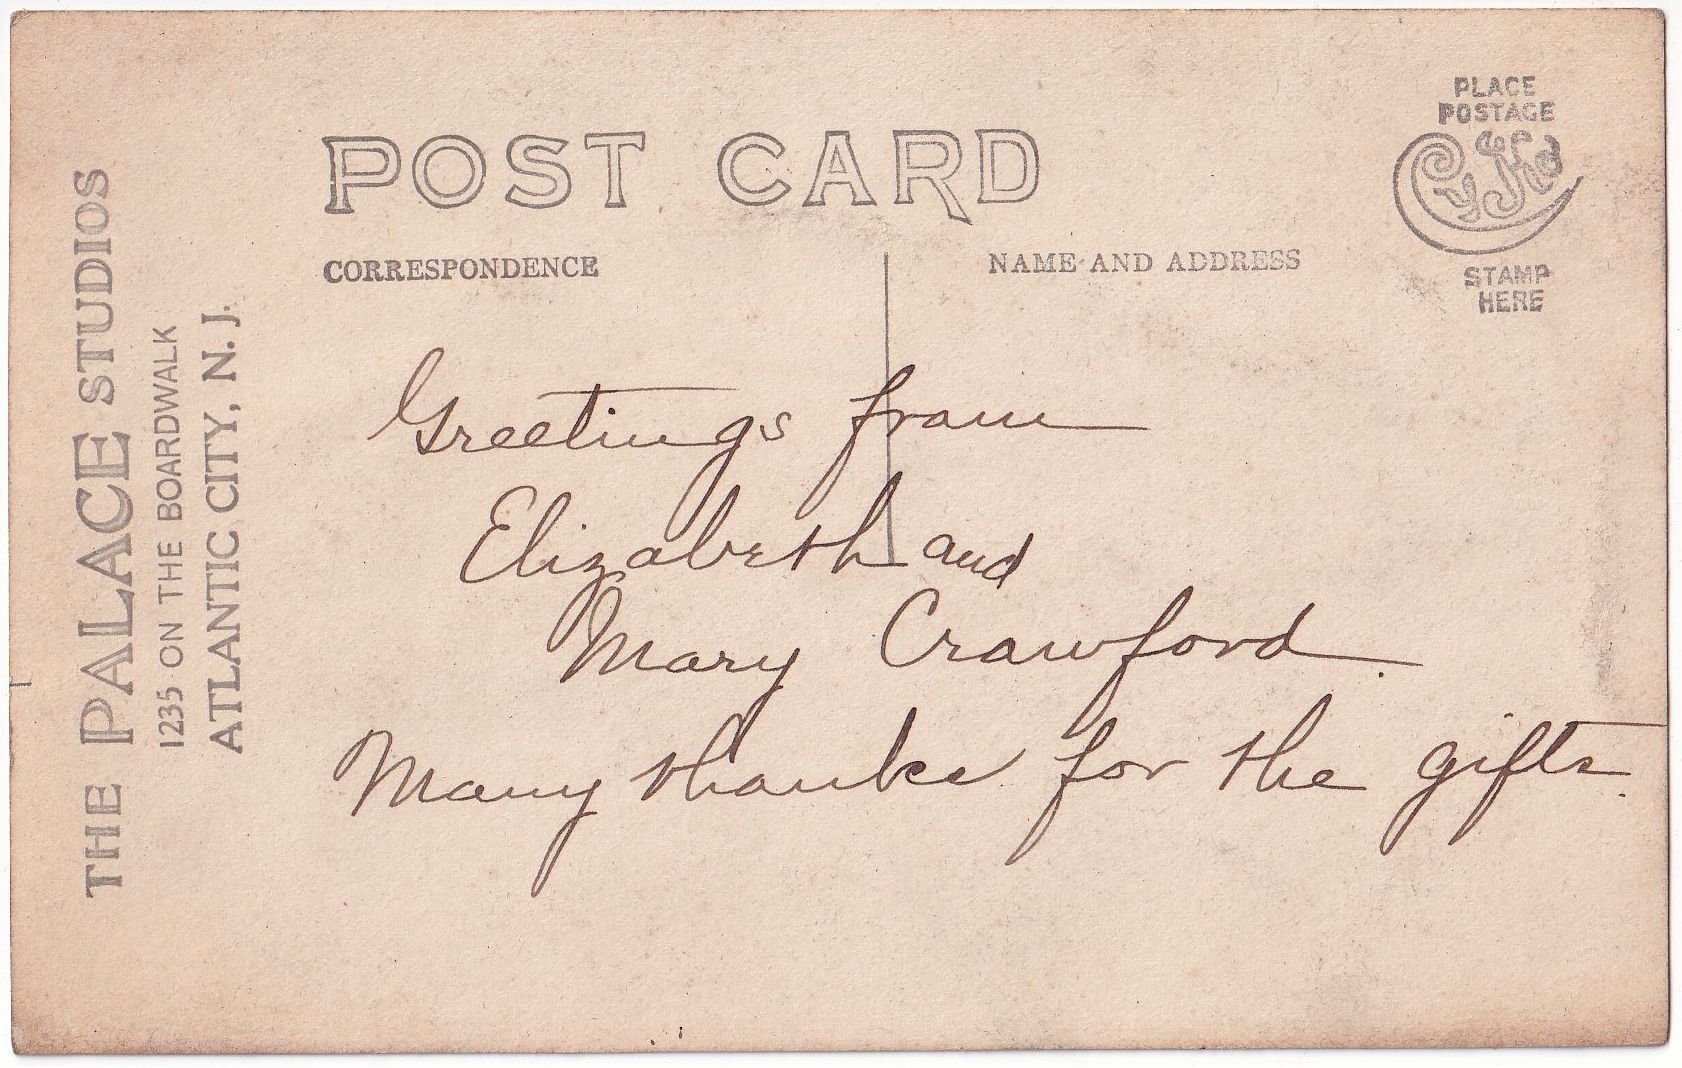 THE PALACE STUDIOS
1235 ON THE BOARDWALK
ATLANTIC CITY, N. J.
POST CARD
CORRESPONDENCE
NAME AND ADDRESS
PLACE
POSTAGE
Cyko
STAMP
HERE
Greetings from
Elizabeth and
Mary Crawford.
Many thanks for the gifts.